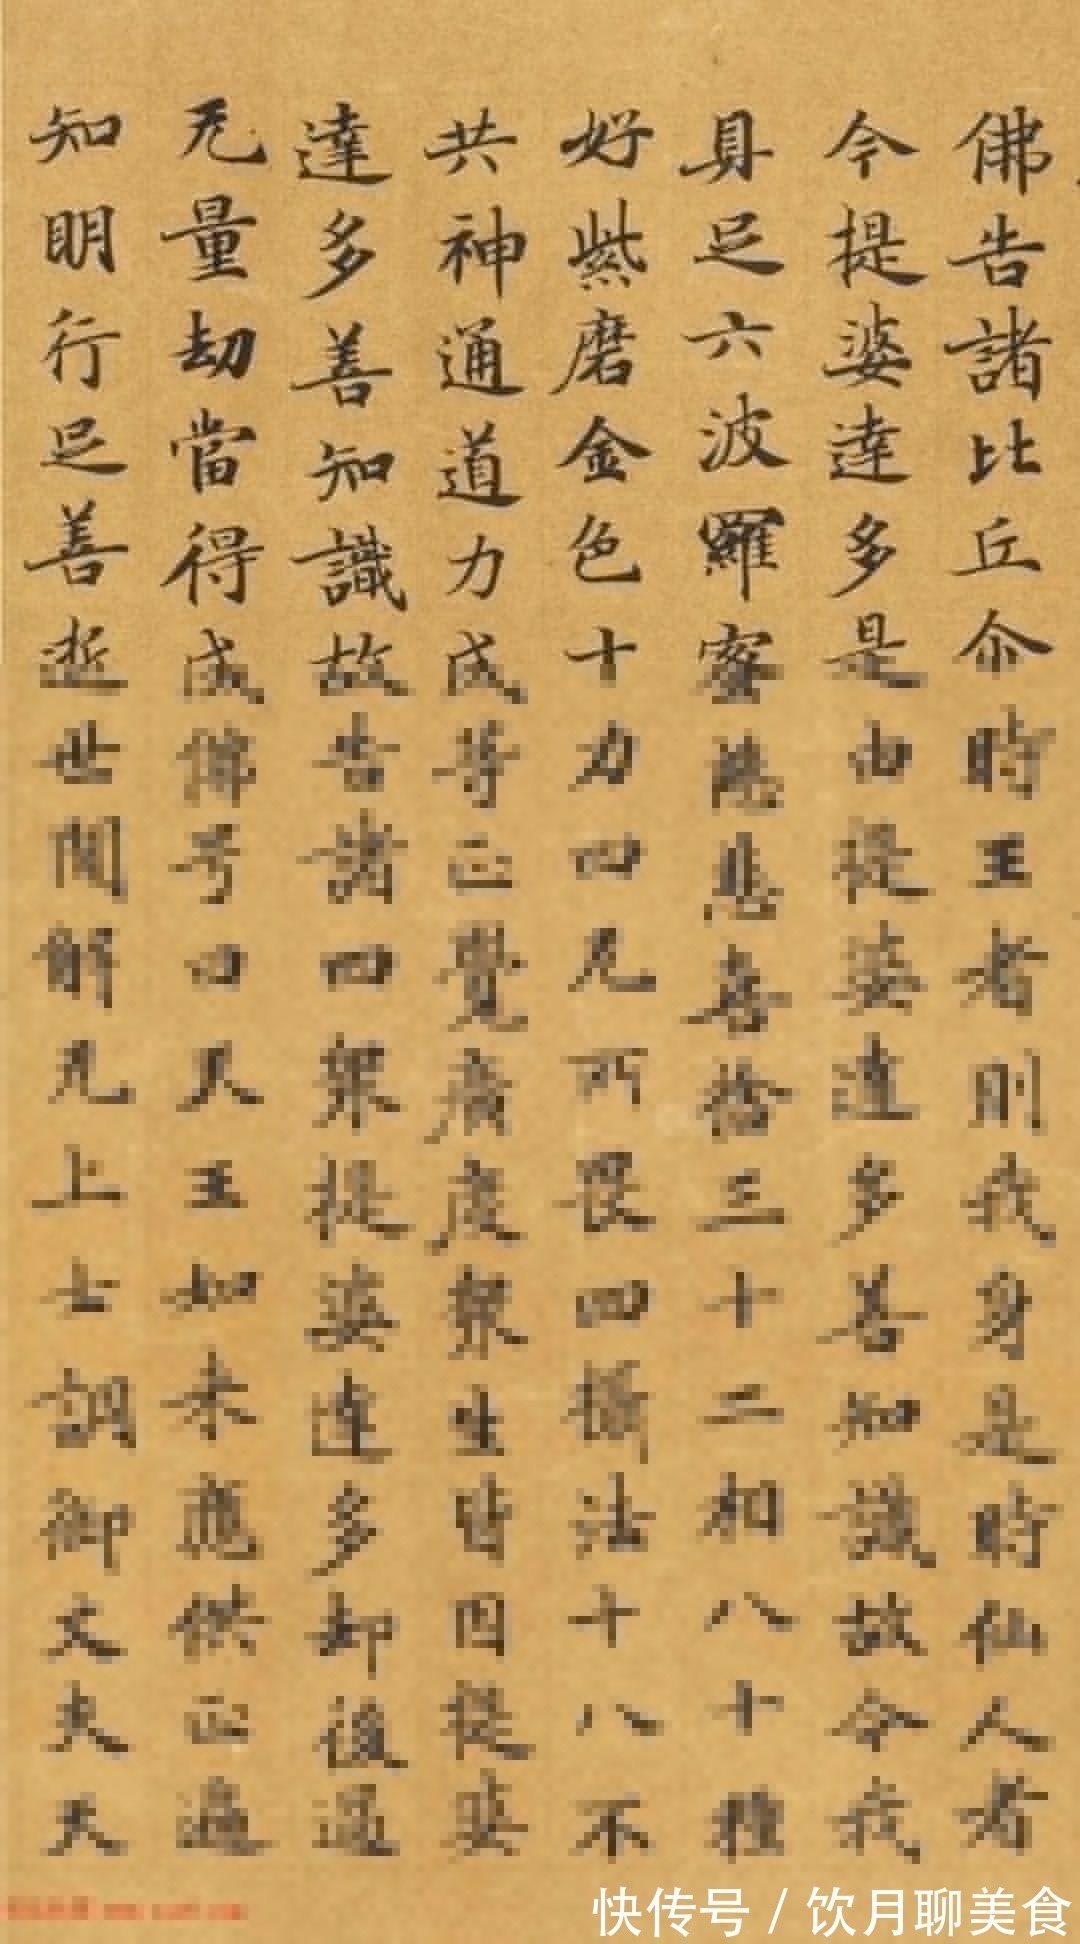 佛告諸比丘尒時王者則我身是時仙人者
今提婆達多是由提婆達多善知識故令我
具足六波羅蜜慈悲喜捨三十二相八十種
好紫磨金色十力四无所畏四攝法十八不
共神通道力成等正覺廣度衆生皆因提婆
達多善知識故告諸四衆提婆達多却後過
无量劫當得成佛号曰天王如来應供正遍
知明行足善逝世間解无上士調御丈夫天
快传号 / 饮月聊美食